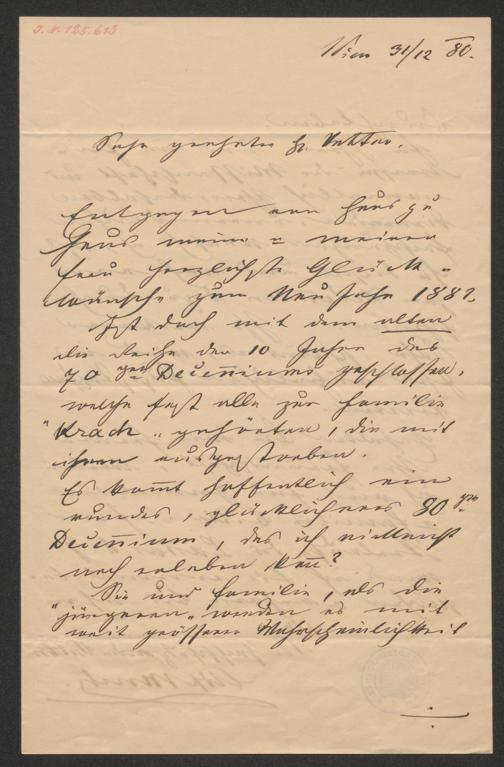 I.N. 125.613
Wien 31/12 80.
Sehr geehrter H. Doktor.
Entgegen von Haus zu
Haus meine = meiner
Frau herzlichste Glück =
wünsche zum Neu Jahr 1881.
Ist doch mit dem alten
die Reihe der 10 Jahre des
70ger Decenniums geschlossen,
welche fast alle zur Familie
"Krach" gehörten, die mit
ihnen ausgestorben.
Es kommt hoffentlich ein
rundes, glücklicheres 80ger
Decennium, das ich vielleicht
noch erleben kann?
Sie und Familie, als die
"jüngeren" werden es mit
weit grösserer Wahrscheinlichkeit